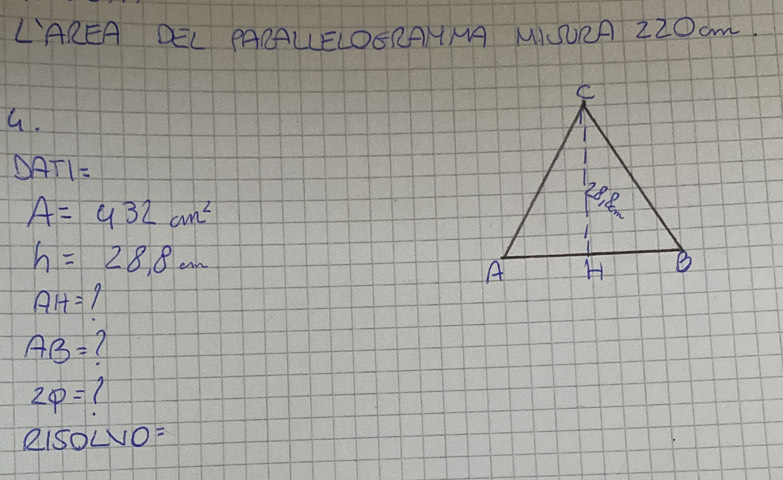 L'AREA DEL PARALLELOGRAMMA MISURA 220cm.
4.
DATI=
A= 432 cm²
h= 28,8 cm
AH=?
AB=?
2p=?
RISOLVO=
C
28,8cm
A H B